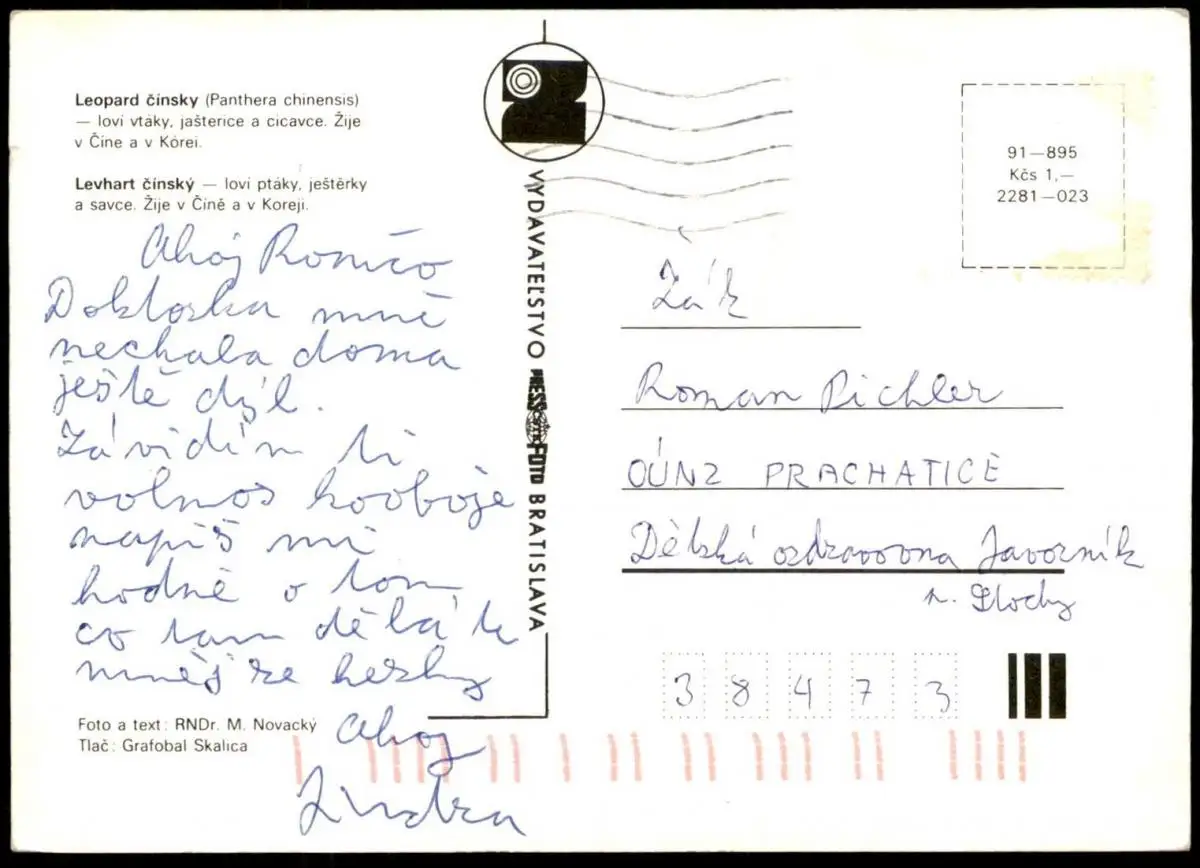 Leopard čínsky (Panthera chinensis)
— loví vtáky, jašterice a cicavce. Žije
v Číne a v Kórei.
Levhart čínský — loví ptáky, ještěrky
a savce. Žije v Číně a v Koreji.
Ahoj Romčo
Doktorka mně
nechala doma
ještě dýl.
Závidím ti
volnos kovboje
napiš mi
hodně o tom
co tam děláš
měj se hezky
Ahoj
Jindra
Foto a text: RNDr. M. Novacký
Tlač: Grafobal Skalica
VYDAVATEĽSTVO PRESSFOTO BRATISLAVA
91—895
Kčs 1,—
2281—023
Žák
Roman Pichler
OÚNZ PRACHATICE
Dětská ozdravovna Javorník
n.
38473